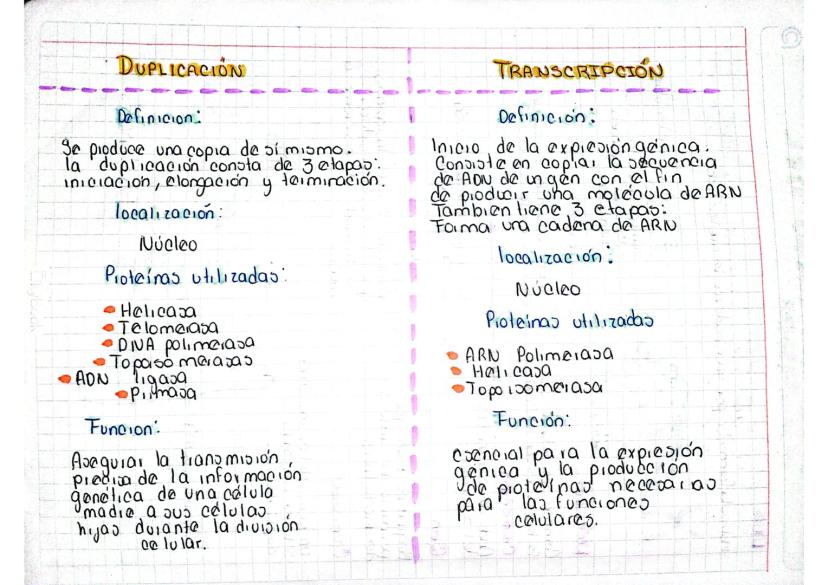 DUPLICACIÓN
Definicion:
Se produce una copia de sí mismo.
la duplicación consta de 3 etapas:
iniciación, elongación y terminación.
localización:
Núcleo
Proteínas utilizadas:
Helicasa
Telomerasa
DNA polimerasa
Topoisomerasas
ADN ligasa
Primasa
Funcion:
Asegurar la transmisión
precisa de la información
genética de una célula
madre a sus células
hijas durante la división
celular.
TRANSCRIPCIÓN
Definición:
Inicio de la expresión génica.
Consiste en copiar la secuencia
de ADN de un gén con el fin
de producir una molécula de ARN
Tambien tiene 3 etapas:
Forma una cadena de ARN
localización:
Núcleo
Proteínas utilizadas
ARN Polimerasa
Helicasa
Topoisomerasa
Función:
esencial para la expresión
génica y la producción
de proteínas necesarias
para las funciones
celulares.